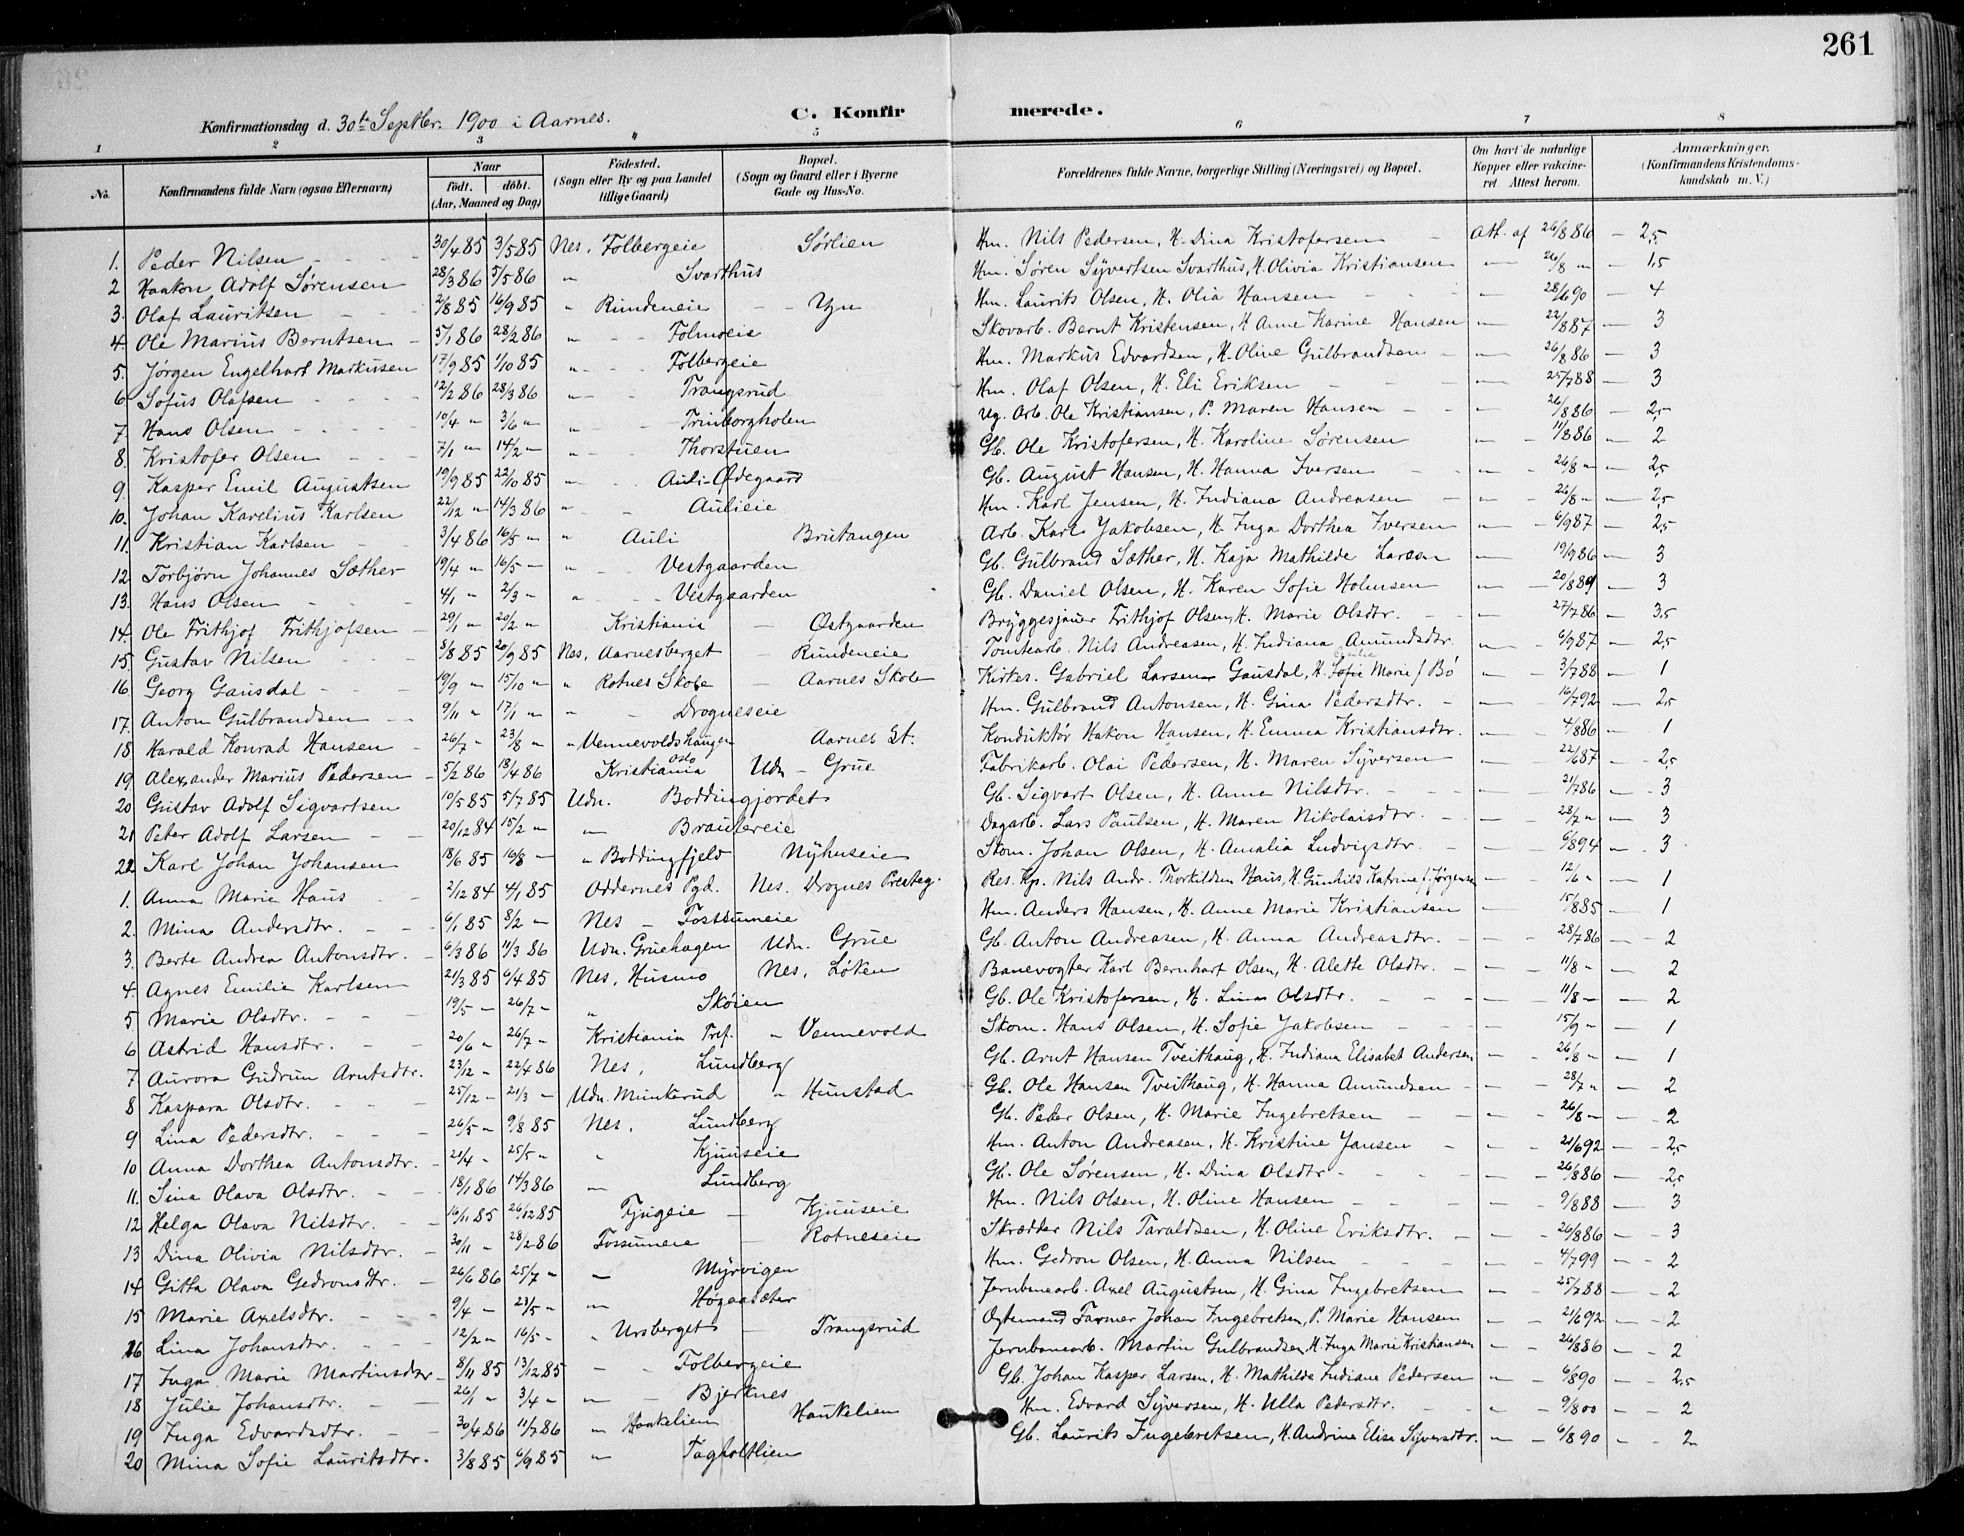 261
Konfirmationsdag d. 30te Septbr. 1900 i Aarnes. C. Konfir merede.
1 2 3 4 5 6 7 8
No. Konfirmandens fulde Navn (ogsaa Efternavn) Naar født. døbt. (Aar, Maaned og Dag) Fødested. (Sogn eller By og paa Landet tillige Gaard) Bopæl. (Sogn og Gaard eller i Byerne Gade og Hus-No. Forældrenes fulde Navne, borgerlige Stilling (Næringsvei) og Bopæl. Om havt de naturlige Kopper eller vakcineret. Attest herom. Anmærkninger. (Konfirmandens Kristendomskundskab m. V.)
1. Peder Nilsen 30/4 85 3/5 85 Nes. Folbergeie Sørlien Hm. Nils Pedersen, H. Dina Kristofersen Att. af 26/8 86 2,5
2 Haakon Adolf Sørensen 28/3 86 5/5 86 " Svarthus Hm. Søren Syvertsen Svarthus, H. Olivia Kristiansen 26/8 " 1,5
3. Olaf Lauritsen 2/8 85 16/9 85 " Rundeneie Yyn Hm. Laurits Olsen, H. Olia Hansen 28/6 90 4
4. Ole Marius Berntsen 5/1 86 28/2 86 " Folmoeie Skovarb. Bernt Kristensen, H. Anne Karine Hansen 22/8 87 3
5. Jørgen Engelhart Markusen 17/9 85 1/10 85 " Folbergeie Hm. Markus Edvardsen, H. Oline Gulbrandsen 26/8 86 3
6 Sofus Olafsen 12/2 86 28/3 86 " Trangsrud Hm. Olaf Olsen, H. Eli Eriksen 25/7 88 3
7. Hans Olsen 10/4 " 3/6 " " Trinborgholen Ug. Arb. Ole Kristiansen, P. Maren Hansen 26/8 86 2,5
8. Kristofer Olsen 7/1 " 14/2 " " Thorstuen Gb. Ole Kristofersen, H. Karoline Sørensen 11/8 86 2
9. Kasper Emil Augustsen 19/9 85 22/10 85 " Auli-Ødegaard Gb. August Hansen, H. Hanna Iversen 26/8 " 2,5
10. Johan Karelius Karlsen 22/12 " 14/3 86 " Aulieie Hm. Karl Jensen, H. Indiana Andreasen 26/8 " 2,5
11. Kristian Karlsen 3/4 86 16/5 " " Auli Brutangen Arb. Karl Jakobsen, H. Inga Dorthea Iversen 6/9 87 2,5
12 Torbjørn Johannes Sæther 19/4 " 16/5 " Vestgaarden Gb. Gulbrand Sæther, H. Kaja Mathilde Larsen 19/9 86 3
13. Hans Olsen 4/1 " 2/3 " " Vestgaarden Gb. Daniel Olsen, H. Karen Sofie Holmsen 20/8 89 3
14. Ole Frithjof Frithjofsen 29/1 " 20/2 " Kristiania Østgaarden Bryggesjauer Frithjof Olsen, H. Marie Olsdtr. 27/7 86 3,5
15. Gustav Nilsen 8/8 85 20/9 85 Nes, Aarnesberget Rundeneie Tomtearb. Nils Andreasen, H. Indiana Amundsdtr. 6/9 87 2,5
16 Georg Gausdal 19/9 " 15/10 " " Rotnes Skole Aarnes Skole Kirkes. Gabriel Larsen Gausdal, H. Sofie Marie f. Bö 3/7 88 1
17. Anton Gulbrandsen 9/11 " 17/1 " " Drogneseie Hm. Gulbrand Antonsen, H. Gina Pedersdtr. 16/7 92 2,5
18 Harald Konrad Hansen 26/7 " 23/8 " " Vennevoldshaugen Aarnes St. Konduktør Hakon Hansen, H. Emma Kristiansdtr. 4/8 86 1
19 Alexander Marius Pedersen 5/2 86 18/4 86 Kristiania Oslo Udn Grue Fabrikarb. Olai Pedersen, H. Maren Syversen 22/6 87 2,5
20 Gustav Adolf Sigvartsen 10/5 85 5/7 85 Udn. Boddingjordet Gb. Sigvart Olsen, H. Anna Nilsdtr. 21/7 86 3
21 Peter Adolf Larsen 20/12 84 15/2 " Brautereie Dagarb. Lars Paulsen, H. Maren Nikolaisdtr. 28/7 " 3
22 Karl Johan Johansen 18/6 85 16/8 " Boddingfjeld Nyhuseie Skom. Johan Olsen, H. Amalia Ludvigsdtr. 6/8 94 3
1. Anna Marie Haus 2/12 84 4/1 85 Oddernes Pgd. Nes. Drognes Presteg. Res. Kp. Nils Andr. Thorkildsen Haus, H. Gunhild Katrine f. Jørgensen 12/6 " 1
2. Mina Andersdtr. 6/1 85 8/2 " Nes Fossumeie Hm. Anders Hansen, H. Anne Marie Kristiansen 15/8 85 1
3. Berte Andrea Antonsdtr. 6/3 86 11/3 86 Udn. Gruehagen Udn. Grue Gb. Anton Andreasen, H. Anna Andreasdtr. 28/7 86 2
4. Agnes Emilie Karlsen 21/3 85 6/4 85 Nes, Husmo Nes, Løken Banevogter Karl Bernhart Olsen, H. Alette Olsdtr. 11/8 " 2
5 Marie Olsdtr. 19/5 26/7 " Skøien Gb. Ole Kristofersen, H. Lina Olsdtr. 11/8 2
6 Astrid Hansdtr. 20/6 " 26/7 " Kristiania Tref. " Vennevold Skom. Hans Olsen, H. Sofie Jakobsen 15/9 " 1
7 Aurora Gudrun Arntsdtr. 23/12 " 22/4 86 Nes, Lundberg Gb. Arnt Hansen Tveithaug, H. Indiana Elisabet Andersen 26/8 " 1
8 Kaspara Olsdtr. 25/12 21/3 Udn. Munkerud " Hunstad Gb. Ole Hansen Tveithaug, H. Hanna Amundsen 28/7 " 2
9 Lina Pedersdtr. 26/5 " 9/8 85 Nes, Lundberg Gb. Peder Olsen, H. Marie Ingebretsen 26/8 2
10 Anna Dorthea Antonsdtr. 21/4 " 25/5 " " Kjuuseie Hm. Anton Andreasen, H. Kristine Jansen 21/6 92 2,5
11. Sina Olava Olsdtr. 18/1 86 14/3 86 Lundberg Gb. Ole Sørensen, H. Dina Olsdtr 26/8 86 2,5
12 Helga Olava Nilsdtr. 16/11 85 26/12 85 Fjugeie Kjuuseie Hm. Nils Olsen, H. Oline Hansen 9/8 88 3
13 Dina Olivia Nilsdtr. 30/11 28/2 86 Fossumeie Rotneseie Skrædder Nils Taraldsen, H. Oline Eriksdtr. 26/8 86 3
14 Gitta Olava Gedronsdtr. 26/6 86 25/7 " Myrvigen Hm. Gedron Olsen, H. Anna Nilsen 4/7 99 2
15 Marie Axelsdtr. 9/4 23/5 Høgaasæter Jernbanearb. Axel Augustsen, H. Gina Ingebretsen 25/7 88 2
16 Lina Johansdtr. 12/2 " 16/5 " Ursberget Trangsrud Ogtemand Farmer Johan Ingebretsen, P. Marie Hansen 21/6 92 2
17 Inga Marie Martinsdtr 8/11 85 13/12 85 Folbergeie Jernbanearb. Martin Gulbrandsen, H. Inga Marie Kristiansen 26/8 86 2
18 Julie Johansdtr. 26/1 3/4 Bjerknes Gb. Johan Kasper Larsen, H. Mathilde Indiane Pedersen 6/8 90 2,5
19 Inga Edvardsdtr. 30/4 86 11/7 86 Haukelien Haukelien Hm. Edvard Syversen, H. Ulla Pedersdtr. 9/8 00 2
20 Mina Sofie Lauritsdtr. 3/8 85 6/9 85 Fagholtlien Gb. Laurits Ingebretsen, H. Andrine Elise Syversdtr. 6/8 90 2